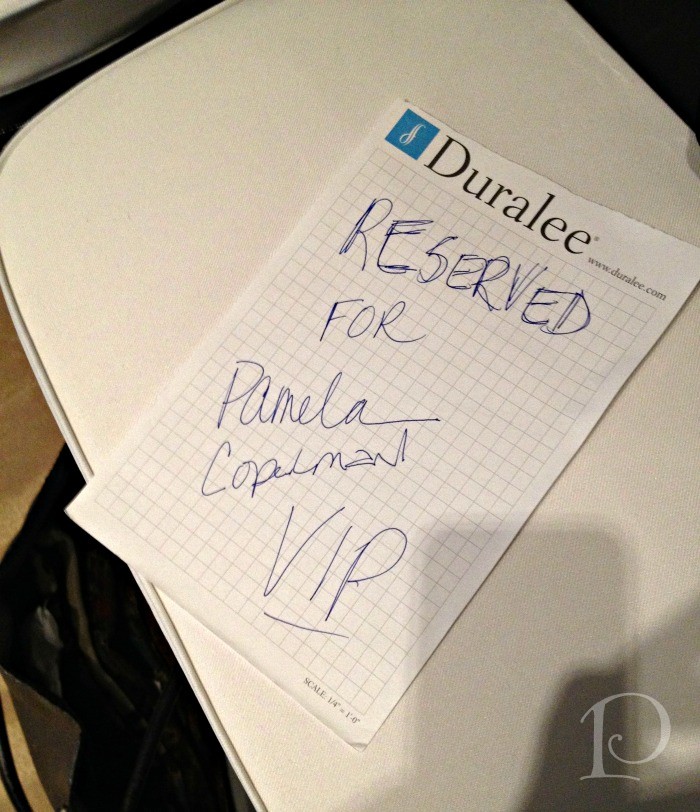 Duralee®
www.duralee.com
RESERVED
FOR
Pamela
Copelmant
VIP
SCALE: 1/4" = 1'-0"
P